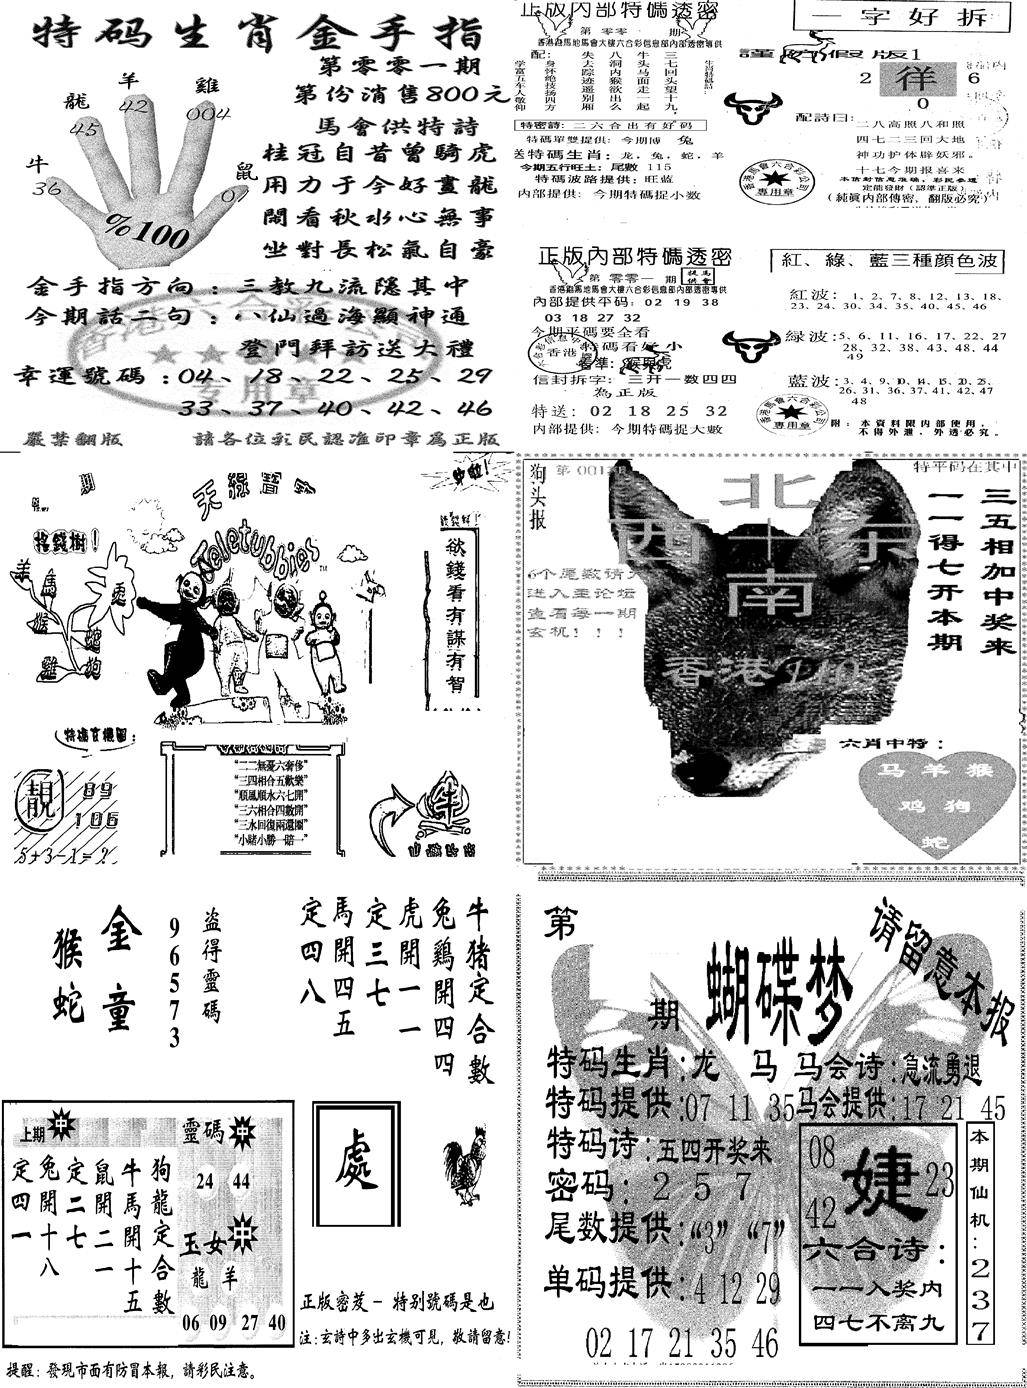 特码生肖金手指
第零零一期
第份消售800元
馬會供特詩
桂冠自昔曾騎虎
用力于今好畫龍
閒看秋水心無事
坐對長松氣自豪
羊
42
雞
004
龍
45
牛
36
鼠
01
%100
金手指方向：三教九流隱其中
今期話二句：八仙過海顯神通
登門拜訪送大禮
幸運號碼：04、18、22、25、29
33、37、40、42、46
嚴禁翻版
請各位彩民認准印章為正版
正版内部特碼透密
第零零一期
香港跑馬地馬會大樓六合彩信息部内部透密專供
配：
失去踪迹遥别厢
八洞内猴欲出么
牛头马面走一起
三七回头望十九
身怀绝技扬四方
学富五车人敬仰
特密詩：二六合出有好码
特碼單雙提供：今期博 兔
送特碼生肖：龙，兔，蛇，羊
今期五行旺土：尾數 115
特碼波路提供：旺蓝
内部提供：今期特碼捉小数
一字好拆
謹防假版1
2
徉
6
0
配詩曰：
二八高照八和照
四七二三回大地
神功护体辟妖邪。
十七今期报喜来
定能發財（認準正版）
（純眞内部傳密，翻版必究）
香港馬會六合彩公司
專用章
正版内部特碼透密
第零零一期
香港跑馬地馬會大樓六合彩信息部内部透密專供
内部提供平码：02 19 38
03 18 27 32
今期平碼要全看
特碼看好小
看準：猴與虎
信封拆字：三开一数四四
為正版
特送：02 18 25 32
内部提供：今期特碼捉大數
紅、綠、藍三種顔色波
紅波：1、2、7、8、12、13、18、
23、24、30、34、35、40、45、46
緑波：5、6、11、16、17、22、27
28、32、38、43、48、44
49
藍波：3、4、9、10、14、15、20、25、
26、31、36、37、41、42、47
48
附：本資料限内部使用，
不得外泄，外透必究。
香港馬會六合彩公司
專用章
期
天線寶寶
Teletubbies
搖錢樹！
羊
馬
兔
猴
蛇
雞
狗
欲錢看有謀有智
特遄官機圖：
靚
89
106
5+3-1=2
“二二無憂六奢侈”
“三四相合五歡樂”
“順風順水六七開”
“三六相合四數開”
“三水回復兩還圈”
“小豬小勝一賠一”
牛
狗头报
第 001期
特平码在其中
北
西十东
南
香港
三五相加中奖来
一一得七开本期
6个尾数请入
进入主论坛
查看每一期
玄机！！！
六肖中特：
马羊猴
鸡狗
蛇
金童
猴蛇
盗得靈碼
965733
牛猪定合數
兔鷄開四四
虎開一一
定三七
馬開四五
定四八
上期
狗龍定合數
牛馬開十五
鼠開二一
定二七
兔開十八
定四一
靈碼
24 44
玉女
龍 羊
06 09 27 40
處
正版密笈－特别號碼是也
注：玄詩中多出玄機可見，敬請留意！
提醒：發現市面有防冒本報，請彩民注意。
第
期
蝴蝶梦
请留意本报
特码生肖：龙 马
马会诗：急流勇退
特码提供：07 11 35
马会提供：17 21 45
特码诗：五四开奖来
密码：2 5 7
尾数提供：“3” “7”
单码提供：4 12 29
02 17 21 35 46
08
婕
23
42
六合诗：
一一入奖内
四七不离九
本期仙机：237